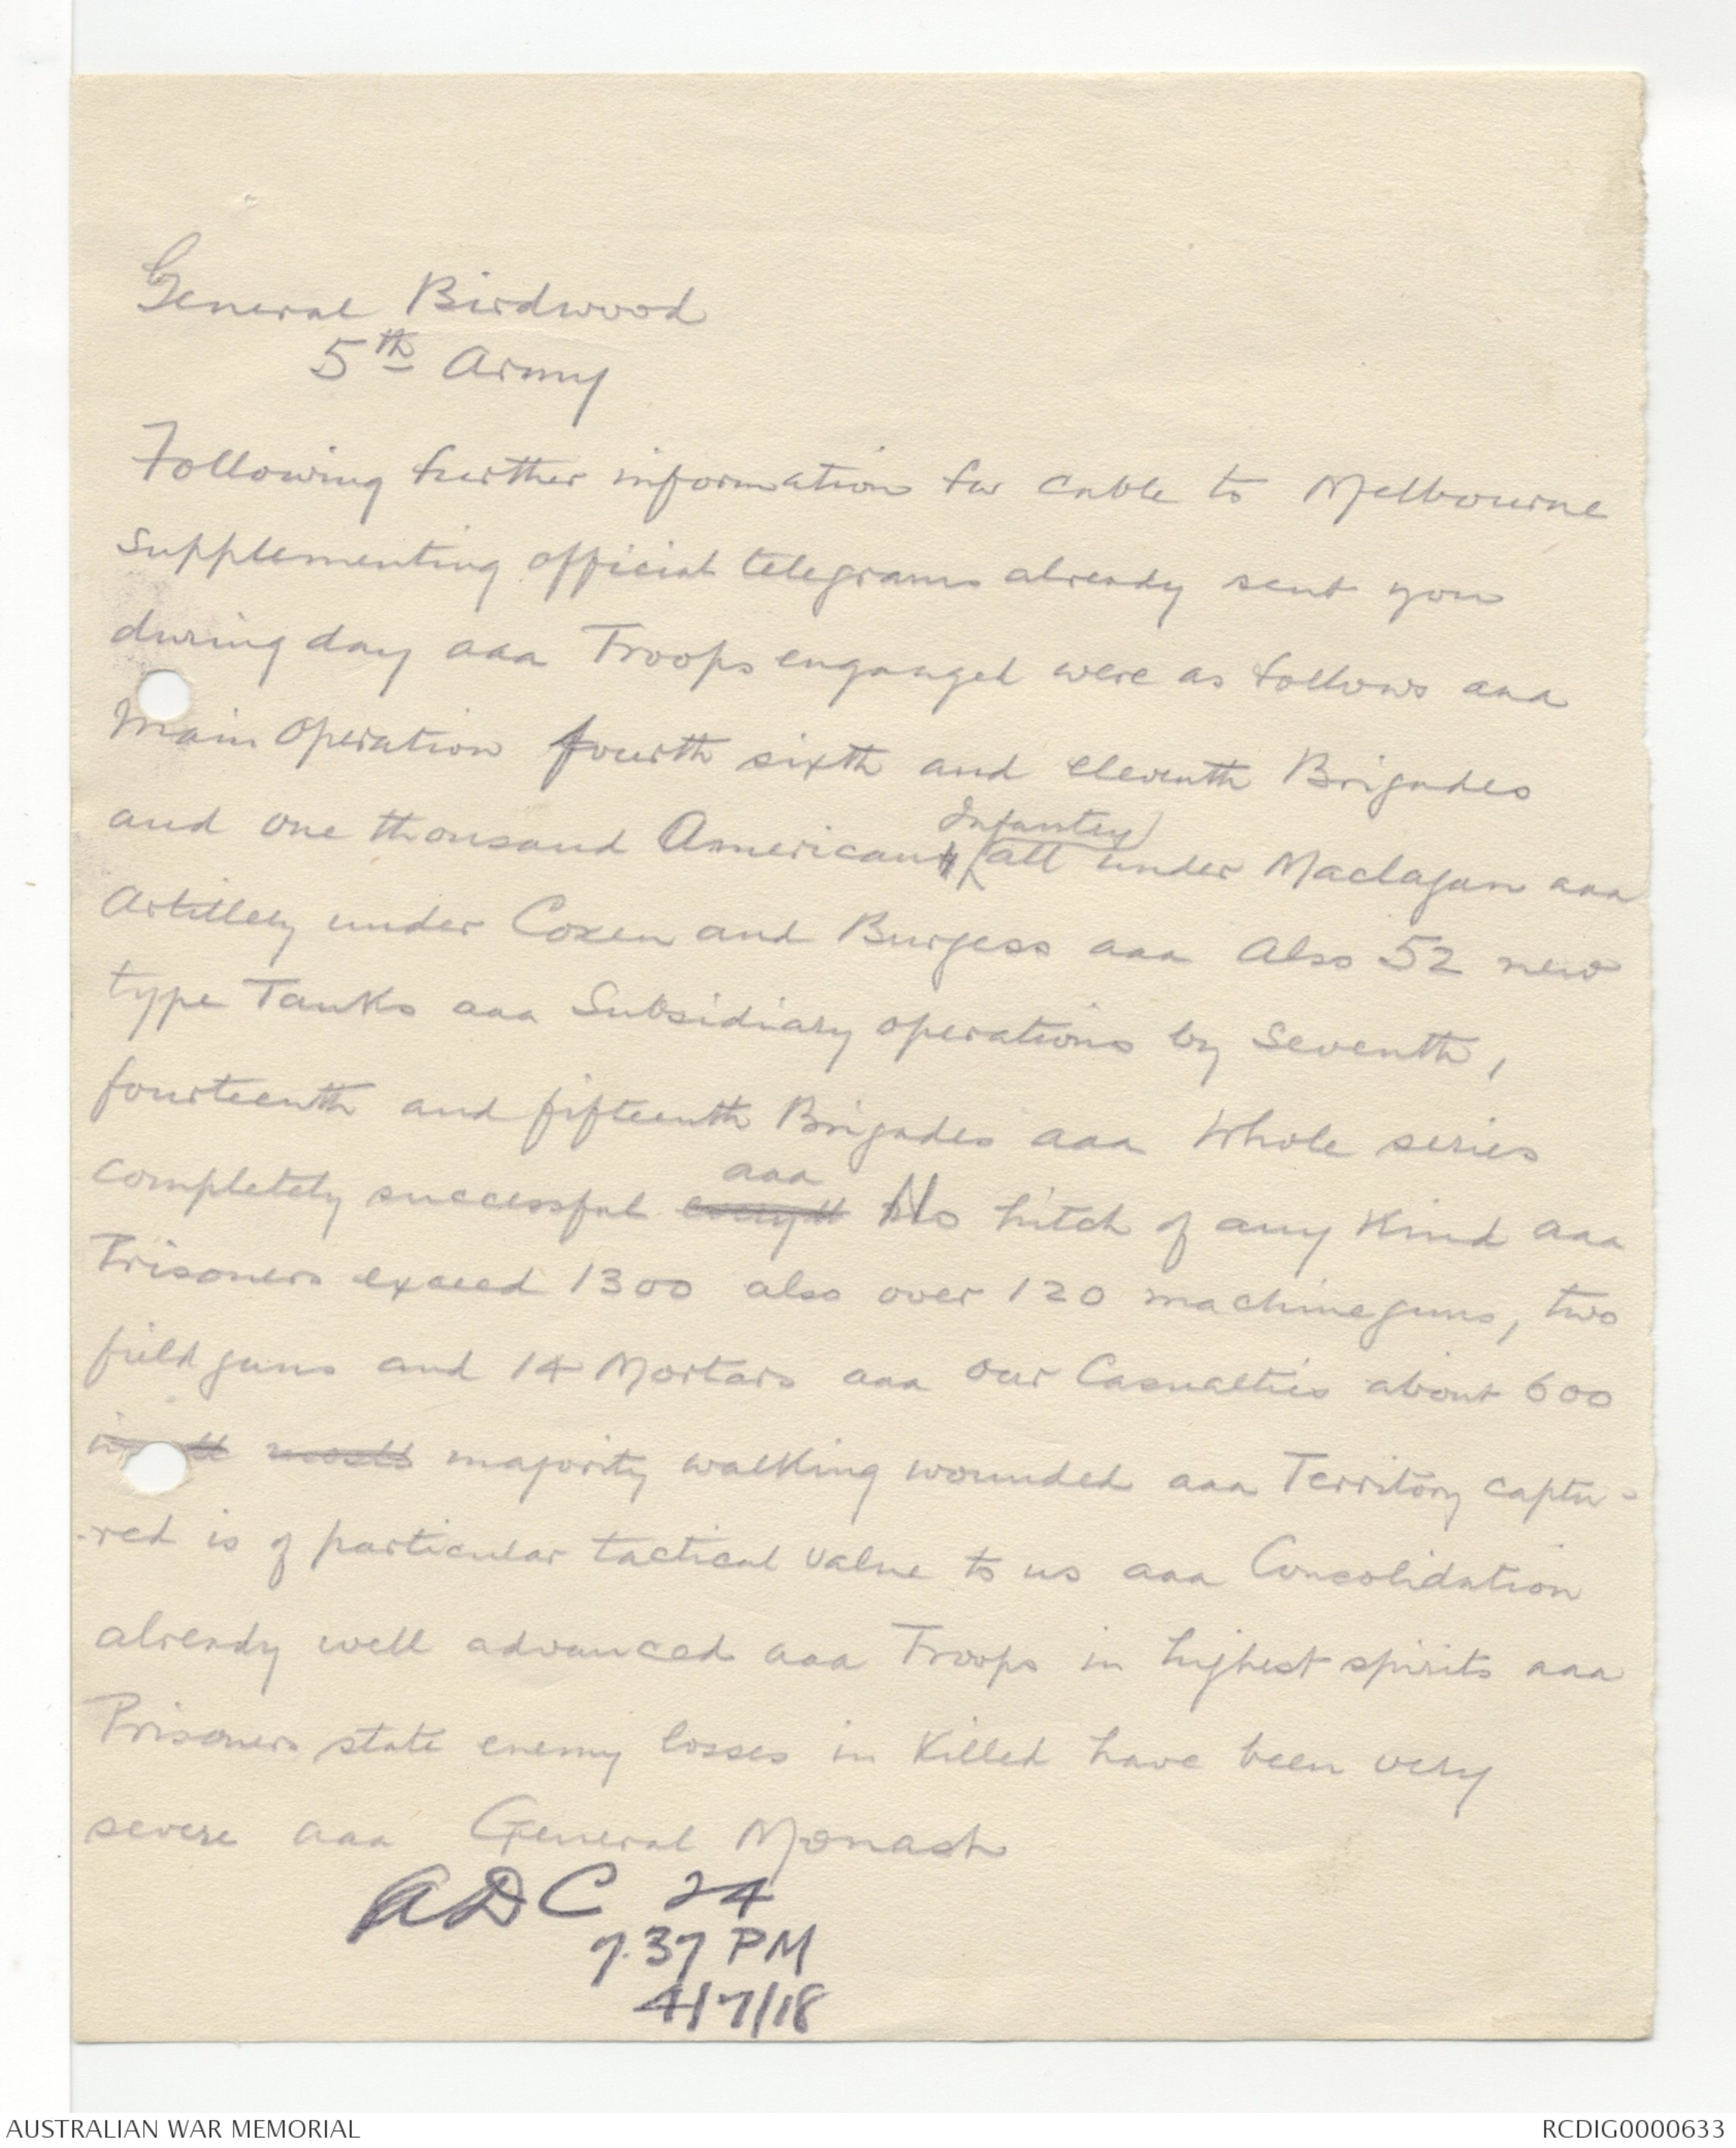 General Birdwood
5th Army
Following further information for cable to Melbourne
supplementing official telegrams already sent you
during day aaa Troops enganged were as follows aaa
Main Operation fourth sixth and eleventh Brigades
Infantry
and one thousand American all under Maclagan aaa
Artillery under Coxen and Burgess aaa Also 52 new
type Tanks aaa Subsidiary operations by Seventh,
fourteenth and fifteenth Brigades aaa Whole series
aaa
completely successful No hitch of any kind aaa
Prisoners exceed 1300 also over 120 machineguns, two
field guns and 14 Mortars aaa Our Casualties about 600
majority walking wounded aaa Territory captu-
-red is of particular tactical value to us aaa Consolidation
already well advanced aaa Troops in highest spirits aaa
Prisoners state enemy losses in Killed have been very
severe aaa General Monash
ADC 24
7.37 PM
4/7/18
AUSTRALIAN WAR MEMORIAL
RCDIG0000633